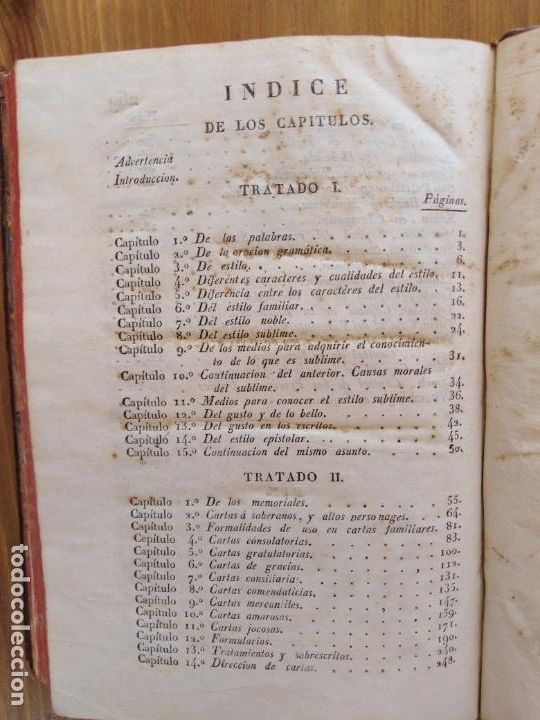 INDICE
DE LOS CAPITULOS.
Advertencia
Introduccion.
TRATADO I.
Páginas.
Capítulo 1.º De las palabras. 1.
Capítulo 2.º De la oracion gramática. 3.
Capítulo 3.º De estilo. 6.
Capítulo 4.º Diferentes caracteres y cualidades del estilo. 11.
Capítulo 5.º Diferencia entre los caractéres del estilo. 13.
Capítulo 6.º Del estilo familiar. 16.
Capítulo 7.º Del estilo noble. 22.
Capítulo 8.º Del estilo sublime. 24.
Capítulo 9.º De los medios para adquirir el conocimien-
to de lo que es sublime. 31.
Capítulo 10.º Continuacion del anterior. Causas morales
del sublime. 34.
Capítulo 11.º Medios para conocer el estilo sublime. 36.
Capítulo 12.º Del gusto y de lo bello. 38.
Capítulo 13.º Del gusto en los escritos. 42.
Capítulo 14.º Del estilo epistolar. 45.
Capítulo 15.º Continuacion del mismo asunto. 50.
TRATADO II.
Capítulo 1.º De los memoriales. 55.
Capítulo 2.º Cartas á soberanos, y altos personages. 64.
Capítulo 3.º Formalidades de uso en cartas familiares. 81.
Cepítulo 4.º Cartas consolatorias. 83.
Capítulo 5.º Cartas gratulatorias. 100.
Capítulo 6.º Cartas de gracias. 112.
Capítulo 7.º Cartas consiliarias. 131.
Capítulo 8.º Cartas comendaticias. 135.
Capítulo 9.º Cartas mercantiles. 147.
Capítulo 10.º Cartas amorosas. 159.
Capítulo 11.º Cartas jocosas. 171.
Capítulo 12.º Formularios. 190.
Capítulo 13.º Tratamientos y sobrescritos. 240.
Capítulo 14.º Direccion de cartas. 248.
todocoleccion.net